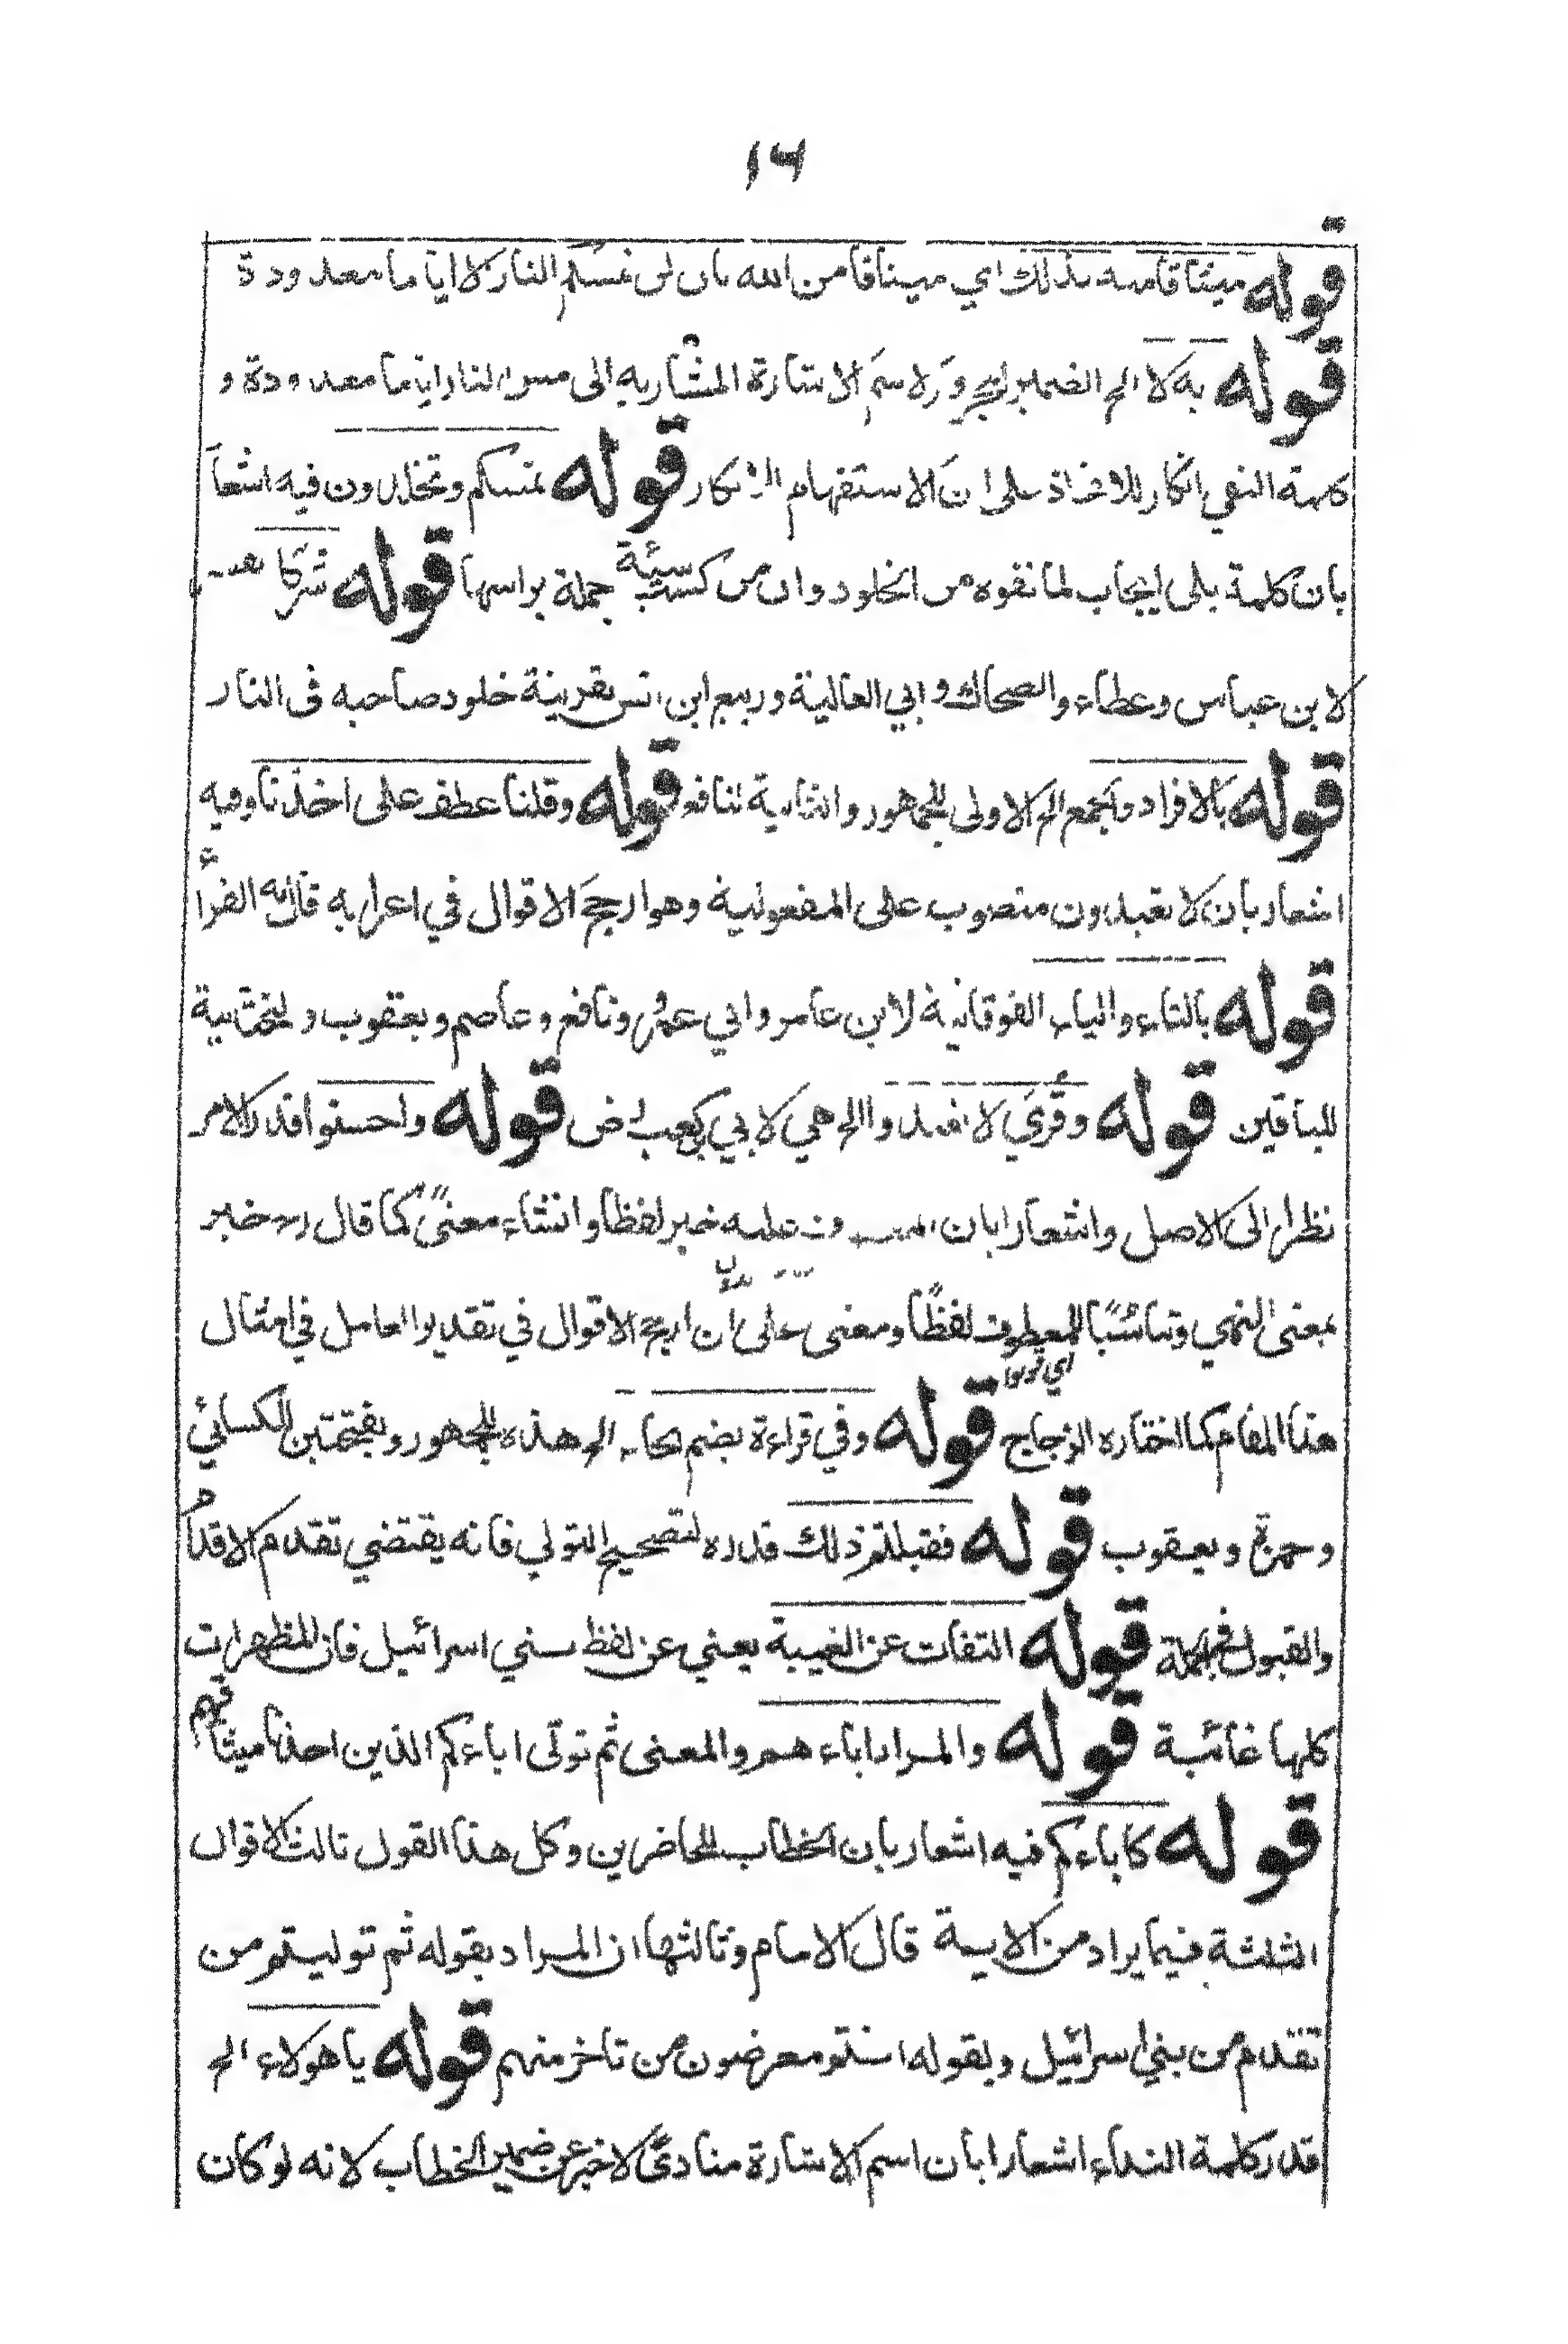 ١٦
قوله ميثاقا منه بذلك اي ميثاقا من الله بان لن تمسكم النار الا اياما معدودة
قوله به لا الخ الضمير المجرور لاسم الاشارة المشار به الى مس النار اياما معدودة و
كلمة النفي انكار للاتخاذ على ان الاستفهام للانكار قوله تمسكم وتخلدون فيه اشعا
بان كلمة بلى ايجاب لما نفوه من الخلود وان من كسب سيئة جملة براسها قوله شركا
لابن عباس وعطاء والضحاك وابي العالية وربيع ابن انس بقرينة خلود صاحبه في النار
قوله بالافراد والجمع الخ الاولى للجمهور والثانية لنافع قوله وقلنا عطف على اخذنا وفيه
اشعار بان لا تعبدون منصوب على المفعولية وهو ارجح الاقوال في اعرابه قال به الفراء
قوله بالتاء والياء الفوقانية لابن عامر وابي عمرو ونافع وعاصم ويعقوب والتحتانية
للباقين قوله وقرئ لا تعبدوا الخ هي لابي بن كعب رض قوله واحسنوا قدر الامر
نظرا الى الاصل واشعارا بان عليه خبر لفظا وانشاء معنىً كما قال خبر
بمعنى النهي وتناسبًا للمعطوف لفظًا ومعنى على ان ارجح الاقوال في تقدير العامل في امثال
هذا المقام كما اختاره الزجاج قوله وفي قراءة بضم الحاء الخ هذه للجمهور وبفتحتين للكسائي
وحمزة ويعقوب قوله فقبلتم ذلك قدره لتصحيح التولي فانه يقتضي تقدم الاقدام
والقبول في الجملة قوله التفات عن الغيبة يعني عن لفظ بني اسرائيل فان المظهرات
كلها غائبة قوله والمراد اباءهم والمعنى ثم تولى اباءكم الذين اخذنا ميثاقهم
قوله كاباءكم فيه اشعار بان الخطاب للحاضرين وكل هذا القول ثالث الاقوال
الثلثة فيما يراد من الاية قال الامام وثالثها ان المراد بقوله ثم توليتم من
تقدم من بني اسرائيل وبقوله انتم معرضون من تاخر منهم قوله يا هولاء الخ
قدر كلمة النداء اشعارا بان اسم الاشارة منادىً لا خبر عن ضمير الخطاب لانه لو كان